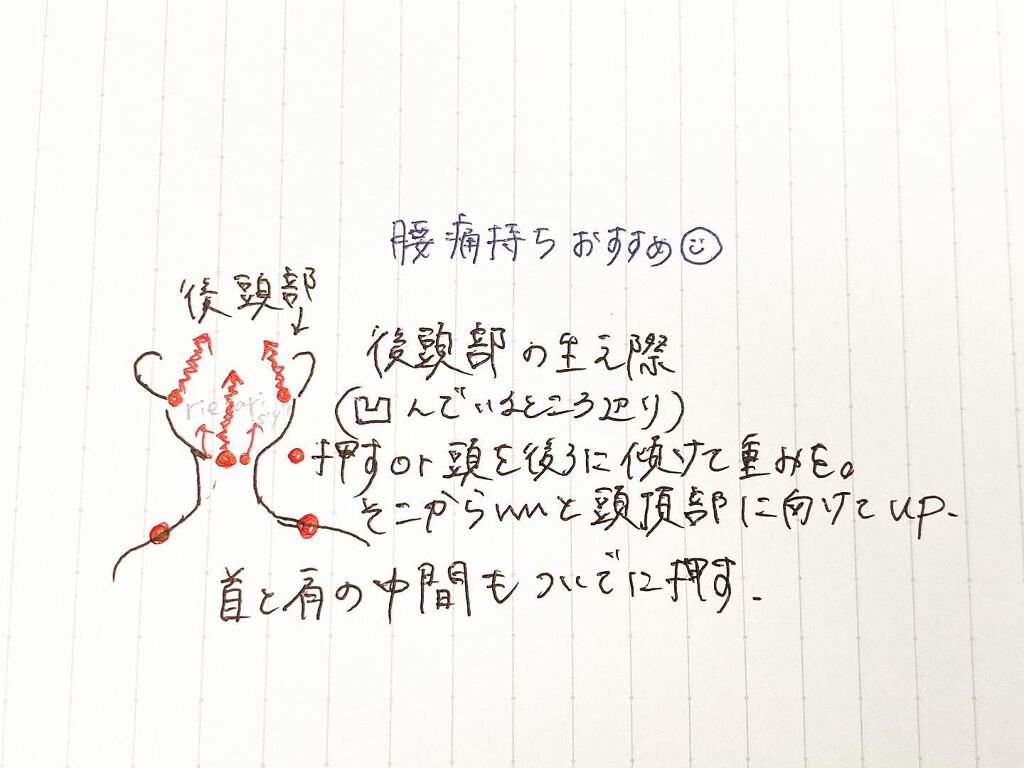 腰痛持ちおすすめ
後頭部
後頭部の生え際
(凹んでいるところ辺り)
押すor頭を後ろに傾けて重みを。
そこからwwと頭頂部に向けてup.
首と肩の中間もついでに押す.